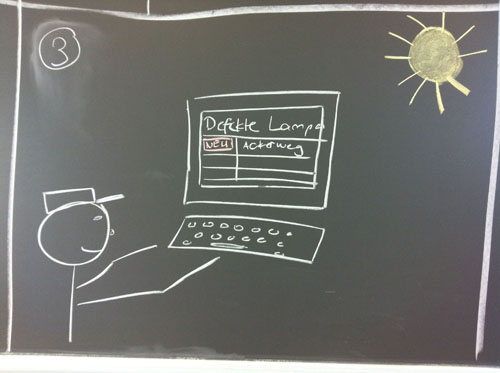 3
Defekte Lampe
NEU Ackerweg